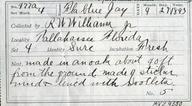 No. 477a/4 Name Blue Jay Date 4/27/893
Collected by R W Williams Jr
Locality Tallahassee Florida
Set 4 Identity Sure Incubation Fresh
made in an oak about 30 ft
from the ground made of sticks
mud & lined with rootlets
No. 5